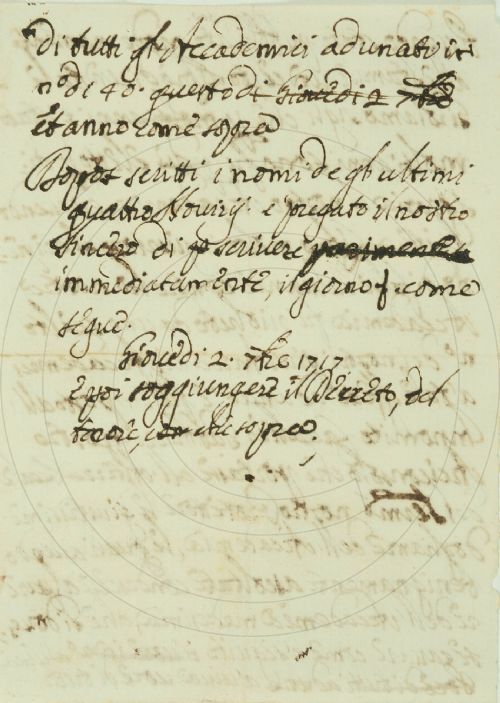 di tutti gl'Accademici adunati in
n.º di 40. questo dì Giovedì 2 7bre
et anno come sopra
Dopo scritti i nomi degli ultimi
quattro Novizj. e pregato il nostro
Sincero di scrivere parimente
immediatamente, il giorno, come
segue.
Giovedì 2. 7bre 1717
E poi soggiungere il Decreto, del
tenore, che sopra.